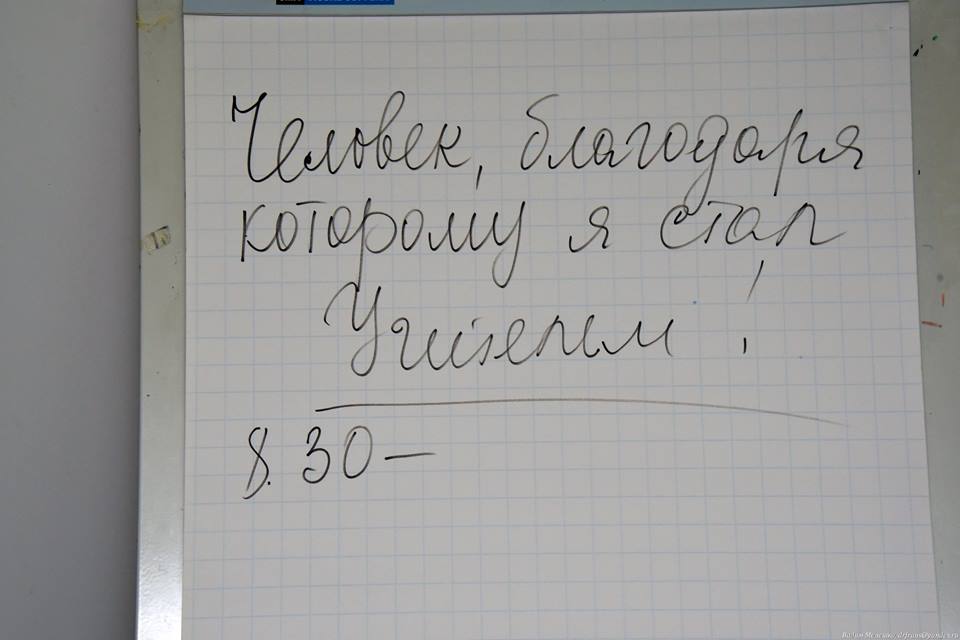 Человек, благодаря
которому я стал
Учителем!
8.30 –